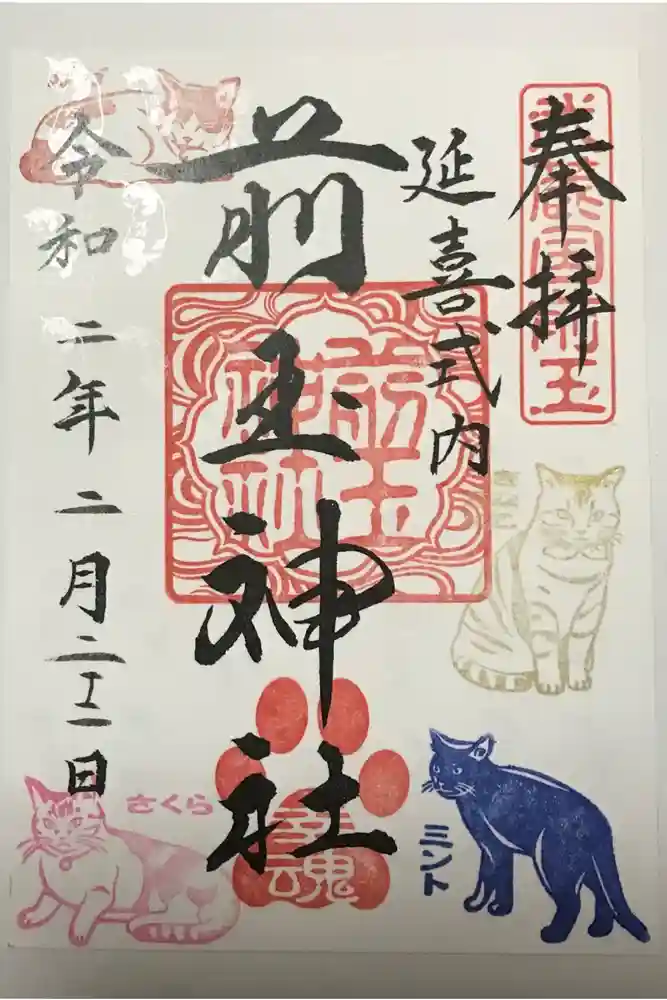 奉拝
延喜式内
前玉神社
前玉
神社
幸魂
令和二年二月二十二日
さくら
ミント